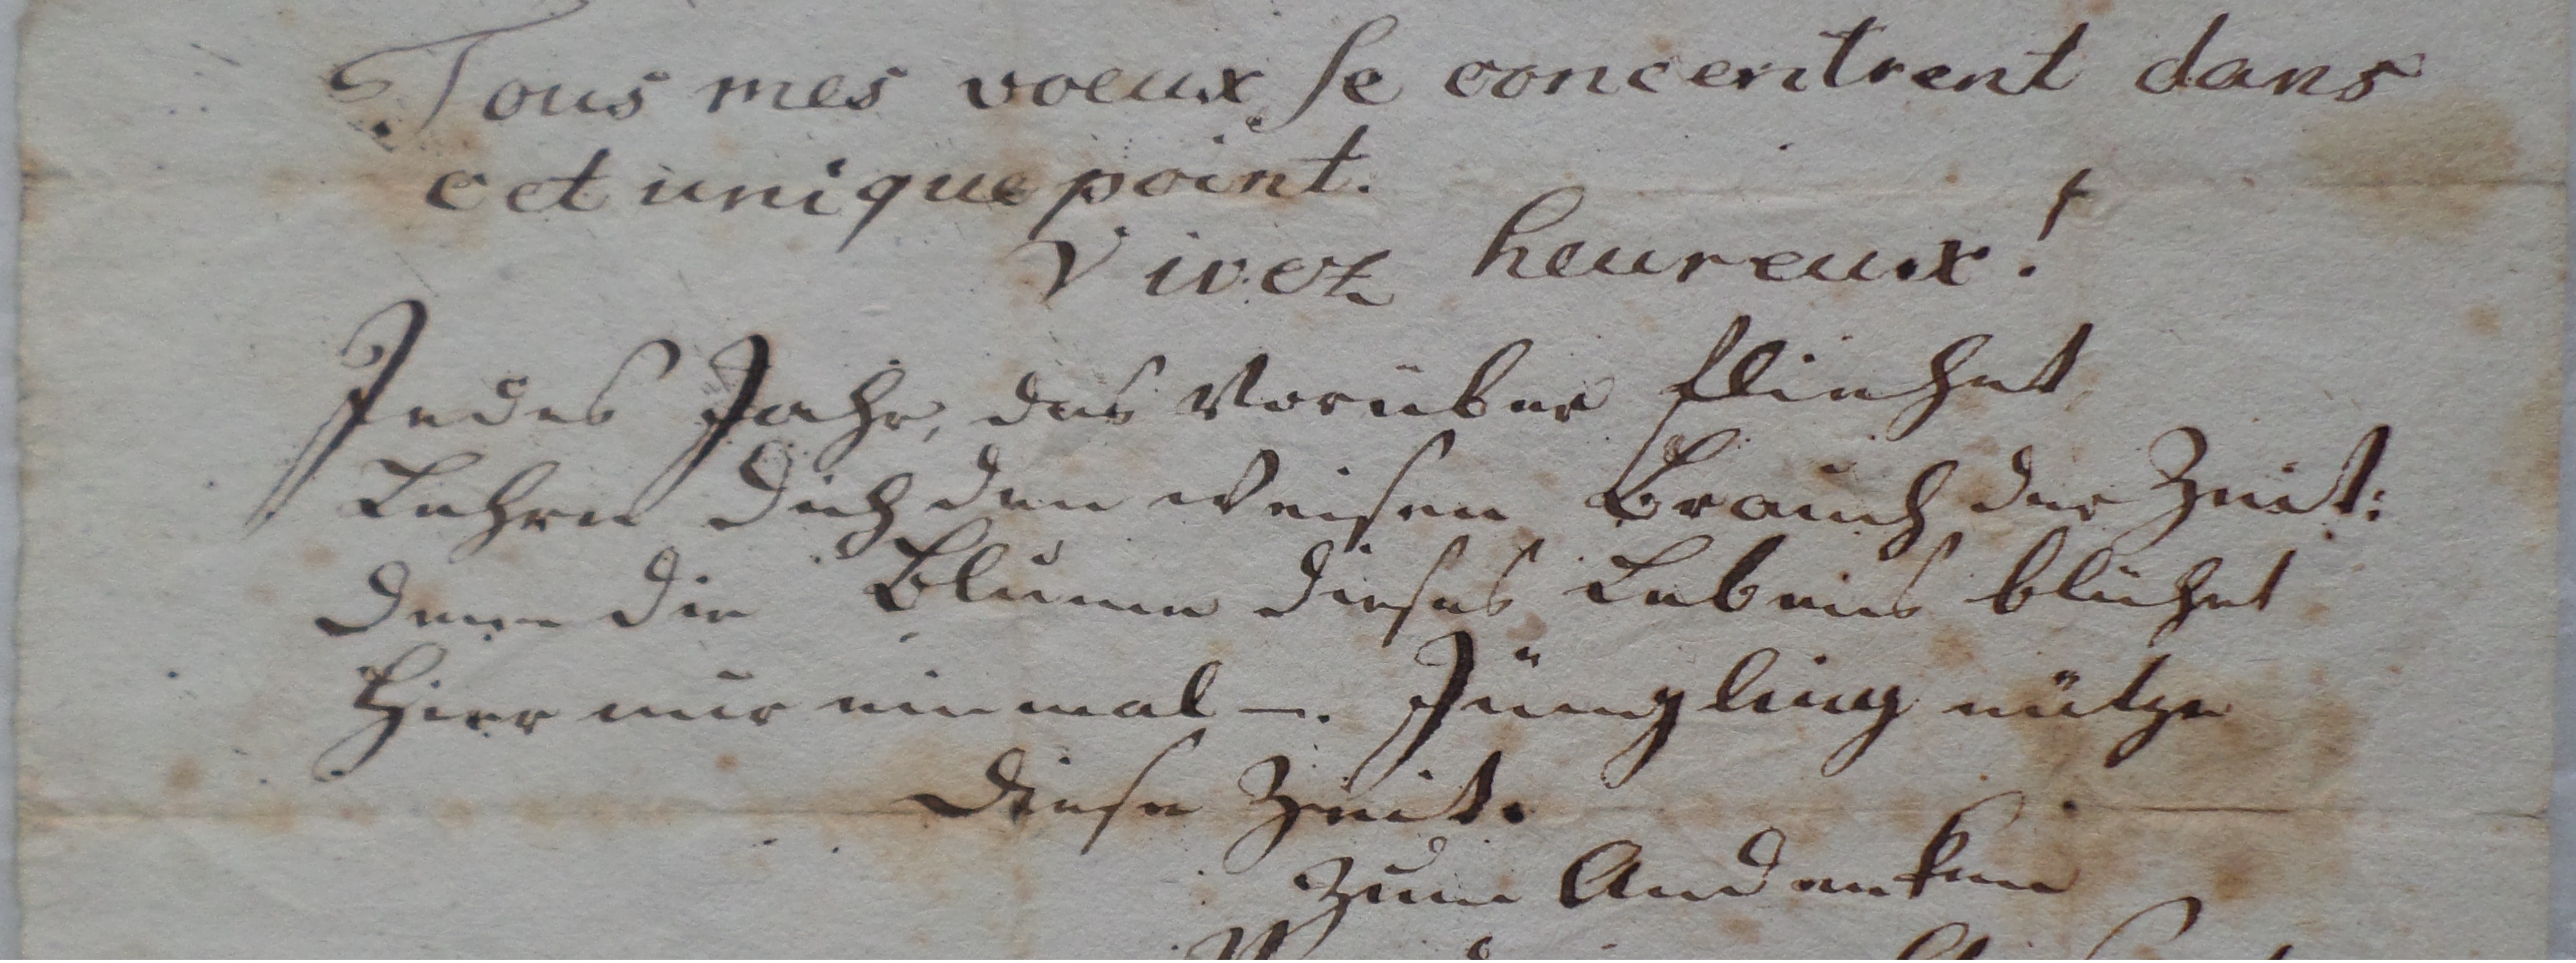 Tous mes voeux se concentrent dans
cet unique point.
Vivez heureux!
Jedes Jahr, das vorüber fliehet
Lehre dich den weisen Brauch der Zeit:
Denn die Blume dieses Lebens blühet
Hier nur einmal –. Jüngling nütze
diese Zeit.
Zum Andenken